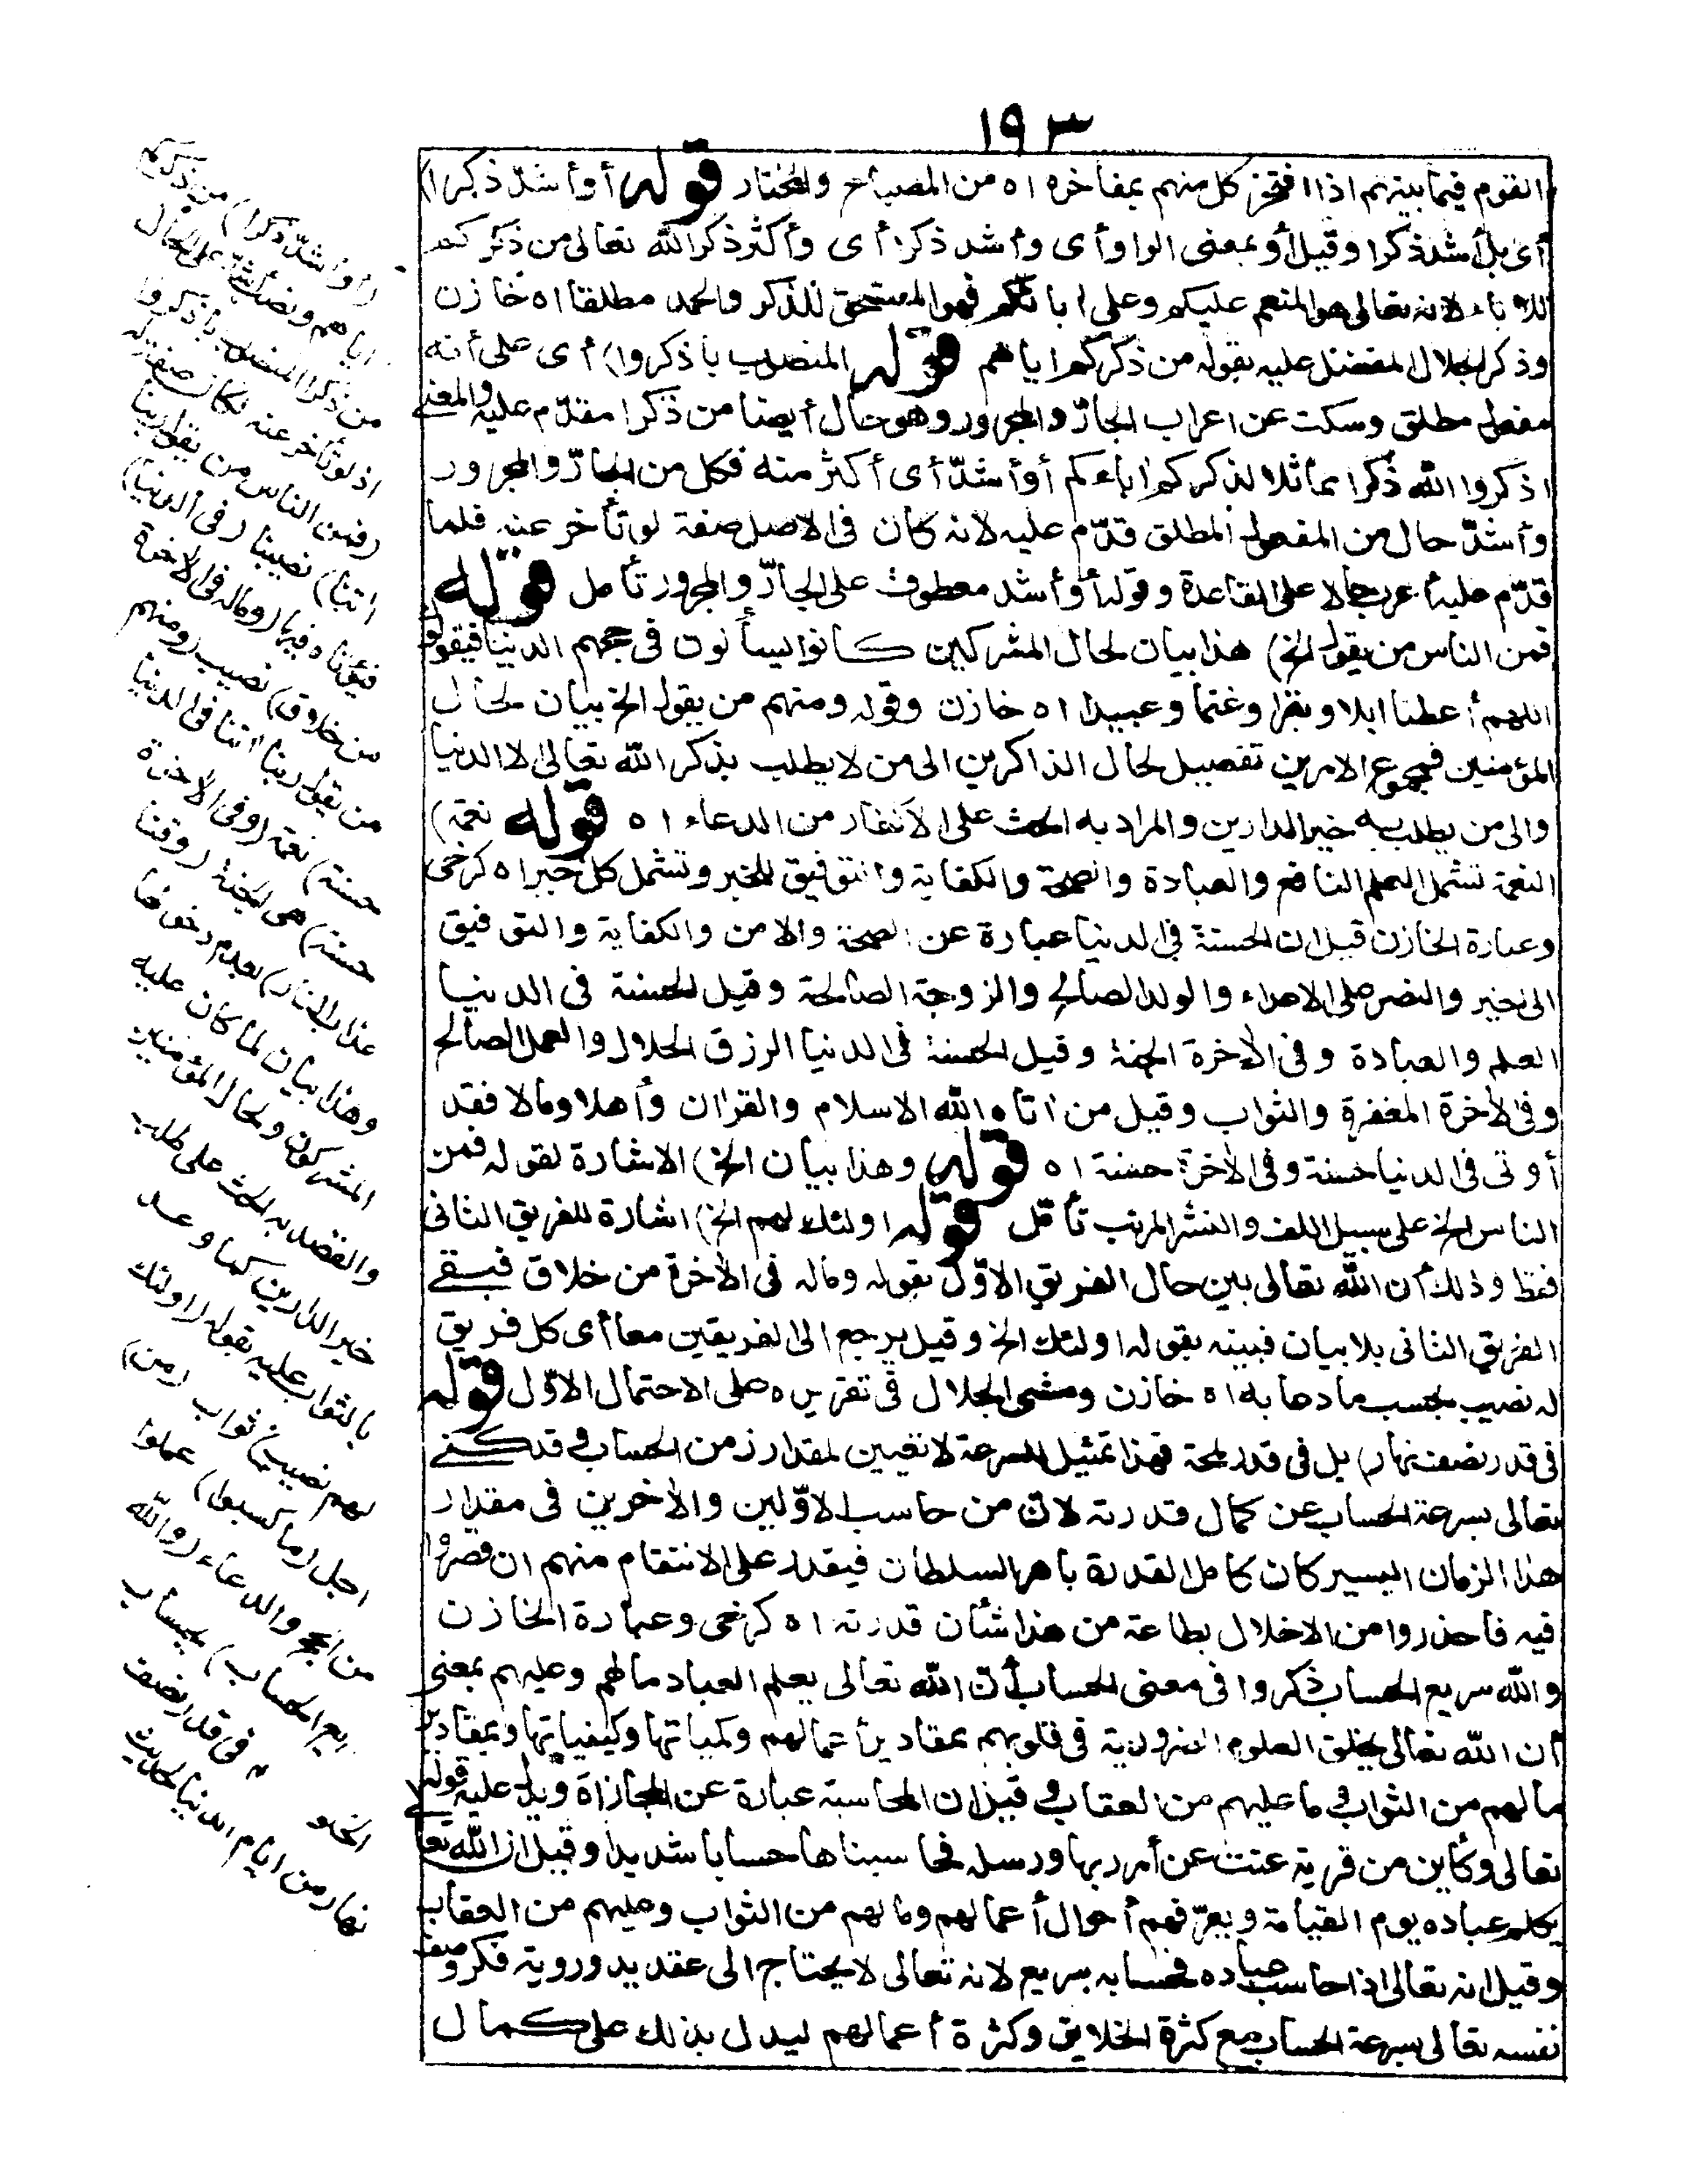 ١٩٣
القوم فيما بينهم اذا افتخر كل منهم بمفاخره اه من المصباح والمختار قوله أو أشدّ ذكرا)
أى بل أشد ذكرا وقيل أو بمعنى الواو أى وأشد ذكرا أى وأكثر ذكرا لله تعالى من ذكركم
للآباء لانه تعالى هو المنعم عليكم وعلى اٰبائكم فهو المستحق للذكر والحمد مطلقا اه خازن
وذكر الجلال المفضل عليه بقوله من ذكركم اياهم قوله المنصوب باذكروا) أى على أنه
مفعول مطلق وسكت عن اعراب الجارّ والمجرور وهو حال أيضا من ذكرا مقدّم عليه والمعنى
اذكروا الله ذكرا مماثلا لذكركم اٰباءكم أو أشدّ أى أكثر منه فكل من الجارّ والمجرور
وأشدّ حال من المفعول المطلق قدّم عليه لانه كان فى الاصل صفة لو تأخر عنه فلما
قدّم عليه أعرب حالا على القاعدة وقوله أو أشد معطوف على الجارّ والمجرور تأمل قوله
فمن الناس من يقول الخ) هذا بيان لحال المشركين كانوا يسألون فى حجهم الدنيا فيقولون
اللهم أعطنا ابلا وبقرا وغنما وعبيدا اه خازن وقوله ومنهم من يقول الخ بيان لحال
المؤمنين فمجموع الامرين تفصيل لحال الذاكرين الى من لا يطلب بذكر الله تعالى الا الدنيا
والى من يطلب به خير الدارين والمراد به الحث على الاكثار من الدعاء اه قوله نعمة)
النعمة تشمل العلم النافع والعبادة والصحة والكفاية والتوفيق للخير وتشمل كل خير اه كرخى
وعبارة الخازن قيل ان الحسنة فى الدنيا عبارة عن الصحة والامن والكفاية والتوفيق
الى الخير والنصر على الاعداء والولد الصالح والزوجة الصالحة وقيل الحسنة فى الدنيا
العلم والعبادة وفى الاٰخرة الجنة وقيل الحسنة فى الدنيا الرزق الحلال والعمل الصالح
وفى الاٰخرة المغفرة والثواب وقيل من اٰتاه الله الاسلام والقراٰن وأهلا ومالا فقد
أوتى فى الدنيا حسنة وفى الاٰخرة حسنة اه قوله وهذا بيان الخ) الاشارة لقوله فمن
الناس الخ على سبيل اللف والنشر المرتب تأمّل قوله اولئك لهم الخ) اشارة للفريق الثانى
فقط وذلك أن الله تعالى بين حال الفريق الاوّل بقوله وماله فى الاٰخرة من خلاق فبقى
الفريق الثانى بلا بيان فبينه بقوله اولئك الخ وقيل يرجع الى الفريقين معا أى كل فريق
له نصيب بحسب ما دعا به اه خازن ومشى الجلال فى تقريره على الاحتمال الاوّل قوله
فى قدر نصف نهار) بل فى قدر لمحة فهذا تمثيل للسرعة لا تعيين لمقدار زمن الحساب وقد كنى
تعالى بسرعة الحساب عن كمال قدرته لانّ من حاسب الاوّلين والاٰخرين فى مقدار
هذا الزمان اليسير كان كامل القدرة باهر السلطان فيقدر على الانتقام منهم ان قصروا
فيه فاحذروا من الاخلال بطاعة من هذا شأن قدرته اه كرخى وعبارة الخازن
والله سريع الحساب ذكروا فى معنى الحساب أن الله تعالى يعلم العباد ما لهم وعليهم بمعنى
أن الله تعالى يخلق العلوم الضرورية فى قلوبهم بمقادير أعمالهم وكمياتها وكيفياتها وبمقادير
ما لهم من الثواب وما عليهم من العقاب وقيل ان المحاسبة عبارة عن المجازاة ويدل عليه قوله
تعالى وكأين من قرية عتت عن أمر ربها ورسله فحاسبناها حسابا شديدا وقيل ان الله تعالى
يكلم عباده يوم القيامة ويعرّفهم أحوال أعمالهم وما لهم من الثواب وعليهم من العقاب
وقيل انه تعالى اذا حاسب عباده فحسابه سريع لانه تعالى لا يحتاج الى عقد يد وروية فكر وصف
نفسه تعالى بسرعة الحساب مع كثرة الخلايق وكثرة أعمالهم ليدل بذلك على كمال
(أو أشدّ ذكرا) من ذكركم
اياهم ونصب أشدّ على الحال
من ذكرا المنصوب باذكروا
اذ لو تأخر عنه لكان صفة له
(فمن الناس من يقول ربنا
اٰتنا) نصيبنا (فى الدنيا)
فيؤتاه فيها (وماله فى الاٰخرة
من خلاق) نصيب (ومنهم
من يقول ربنا اٰتنا فى الدنيا
حسنة) نعمة (وفى الاٰخرة
حسنة) هى الجنة (وقنا
عذاب النار) بعدم دخولها
وهذا بيان لما كان عليه
المشركون ولحال المؤمنين
والقصد به الحث على طلب
خير الدارين كما وعد
بالثواب عليه بقوله (اولئك
لهم نصيب) ثواب (من)
اجل (ما كسبوا) عملوا
من الحج والدعاء (والله
سريع الحساب) يحاسب
الخلق فى قدر نصف
نهار من ايام الدنيا لحديث